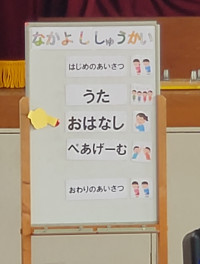 なかよししゅうかい
はじめのあいさつ
うた
おはなし
ぺあげーむ
おわりのあいさつ